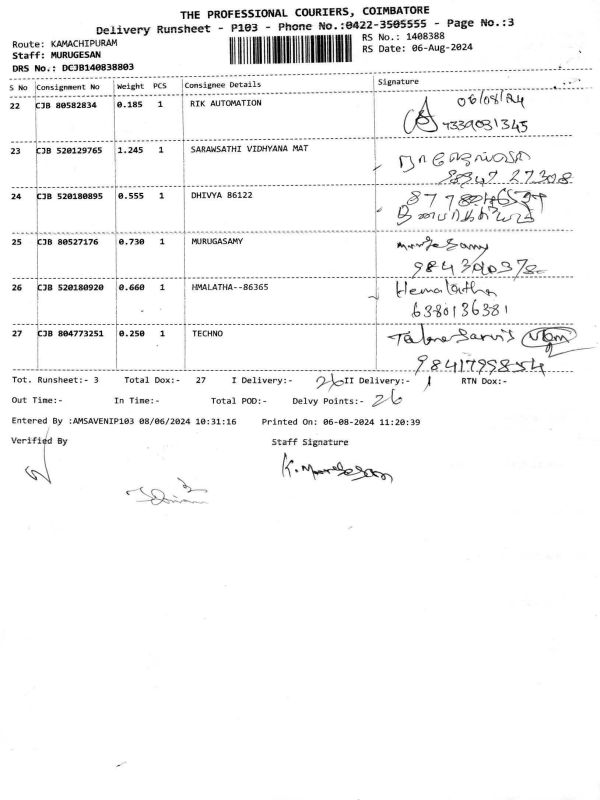 THE PROFESSIONAL COURIERS, COIMBATORE
Delivery Runsheet - P103 - Phone No.:0422-3505555 - Page No.:3
Route: KAMACHIPURAM RS No.: 1408388
Staff: MURUGESAN RS Date: 06-Aug-2024
DRS No.: DCJB140838803
S No Consignment No Weight PCS Consignee Details Signature
22 CJB 80582834 0.185 1 RIK AUTOMATION 06/08/24
23 CJB 520129765 1.245 1 SARAWSATHI VIDHYANA MAT
24 CJB 520180895 0.555 1 DHIVYA 86122
25 CJB 80527176 0.730 1 MURUGASAMY
26 CJB 520180920 0.660 1 HMALATHA--86365 Hemalatha
6380136381
27 CJB 804773251 0.250 1 TECHNO
Tot. Runsheet:- 3 Total Dox:- 27 I Delivery:- 26 II Delivery:- 1 RTN Dox:-
Out Time:- In Time:- Total POD:- Delvy Points:- 26
Entered By :AMSAVENIP103 08/06/2024 10:31:16 Printed On: 06-08-2024 11:20:39
Verified By Staff Signature